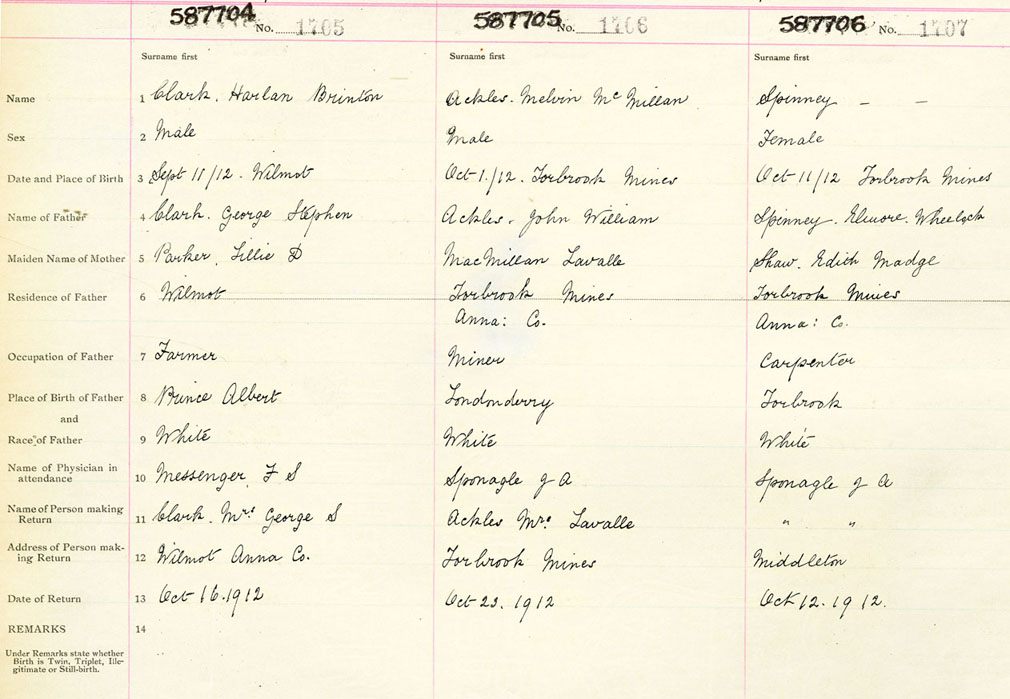 587704 No. 1705 587705 No. 1706 587706 No. 1707
Surname first Surname first Surname first
Name 1 Clark. Harlan Brinton Ackles. Melvin Mc Millan Spinney — —
Sex 2 Male Male Female
Date and Place of Birth 3 Sept 11/12. Wilmot Oct 1./12. Torbrook Mines Oct 11/12 Torbrook Mines
Name of Father 4 Clark. George Stephen Ackles. John William Spinney. Elmore. Wheelock
Maiden Name of Mother 5 Parker. Lillie D MacMillan Lavalle Shaw. Edith Madge
Residence of Father 6 Wilmot Torbrook Mines Torbrook Mines
Anna: Co. Anna: Co.
Occupation of Father 7 Farmer Miner Carpenter
Place of Birth of Father 8 Prince Albert Londonderry Torbrook
and
Race of Father 9 White White White
Name of Physician in
attendance 10 Messenger F S Sponagle J A Sponagle J A
Name of Person making
Return 11 Clark. Mrs George S Ackles Mrs Lavalle " "
Address of Person mak-
ing Return 12 Wilmot Anna Co. Torbrook Mines Middleton
Date of Return 13 Oct 16.1912 Oct 23. 1912 Oct 12. 1912.
REMARKS 14
Under Remarks state whether
Birth is Twin, Triplet, Ille-
gitimate or Still-birth.